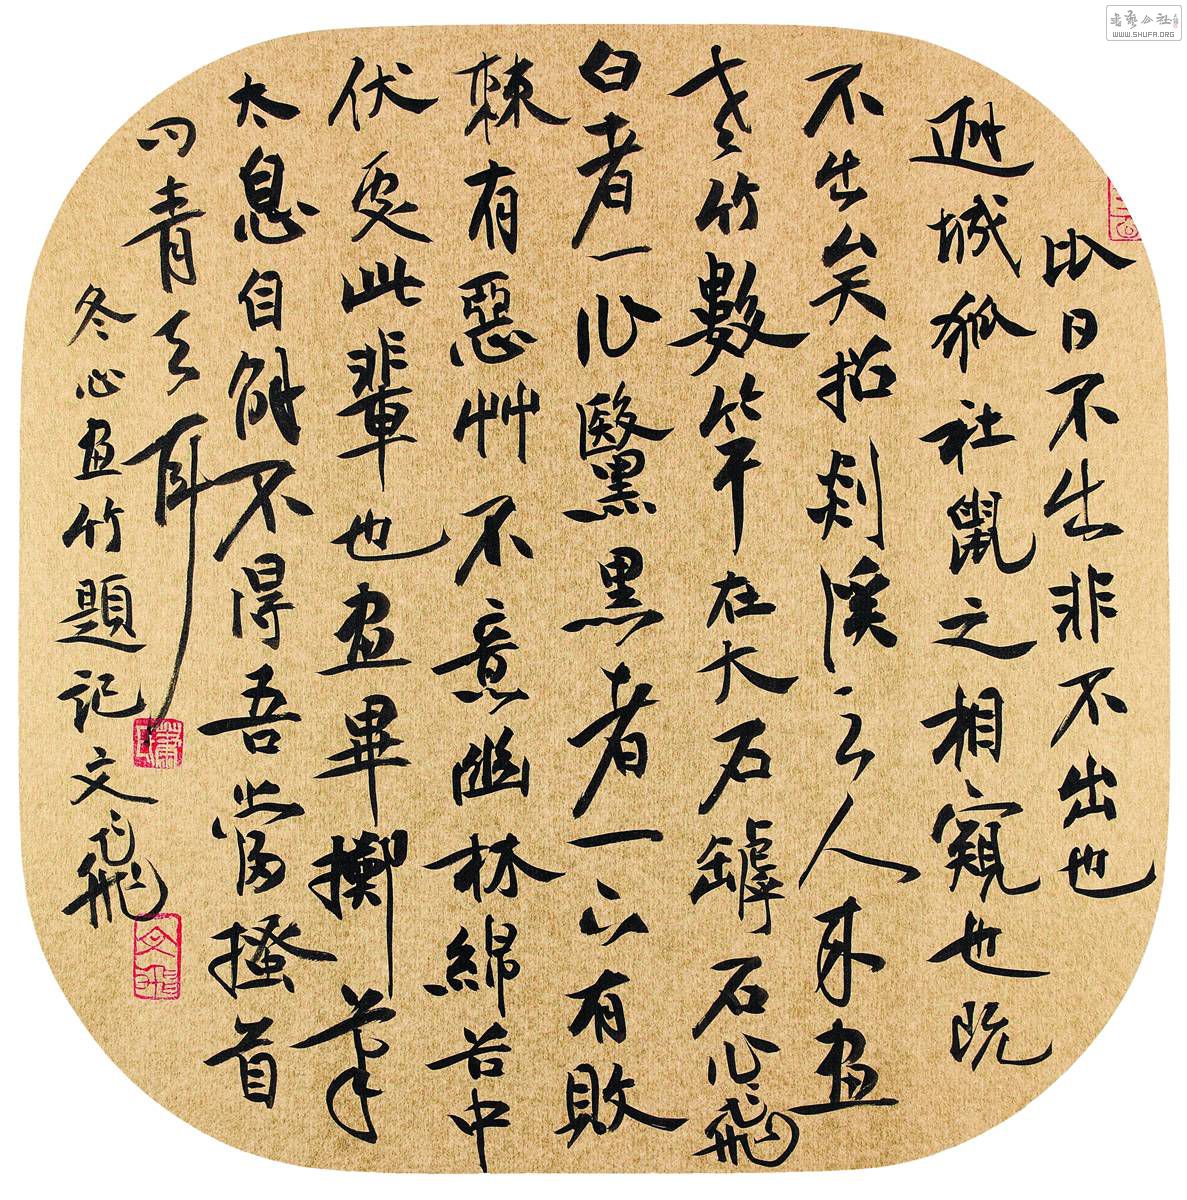 比日不出非不出也
城狐社鼠之相窺也既
不出矣招剡溪之人來畫
老竹數竿在大石罅石心飛
白者一心黳黑者一亦有敗
棘有惡艸不意幽林綿谷中
伏處此輩也畫畢擲筆
太息自解不得吾當搔首
問青天耳
冬心畫竹題記文飛
WWW.SHUFA.ORG